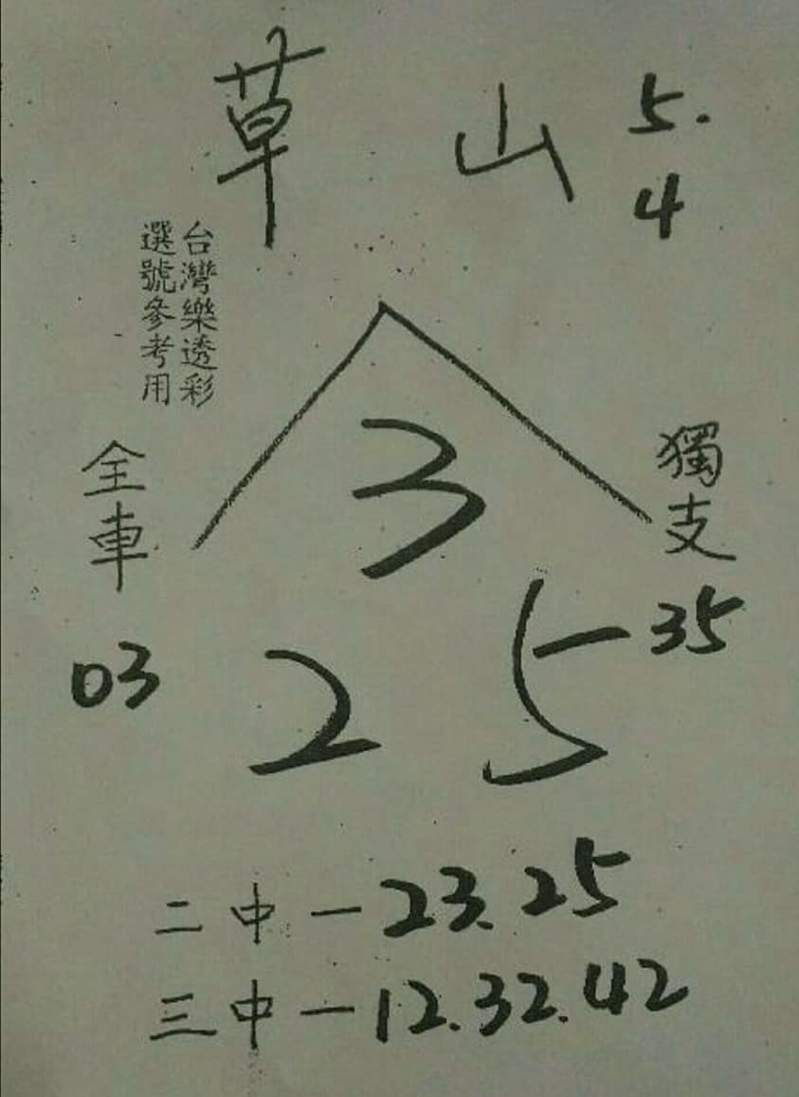 草山 5.4
台灣樂透彩
選號參考用
全車
03
獨支
35
3
2 5
二中一23.25
三中一12.32.42